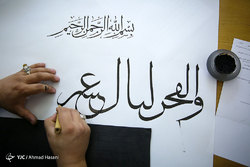 بسم الله الرحمن الرحيم
والفجر ليال عشر
YJC / Ahmad Hasani